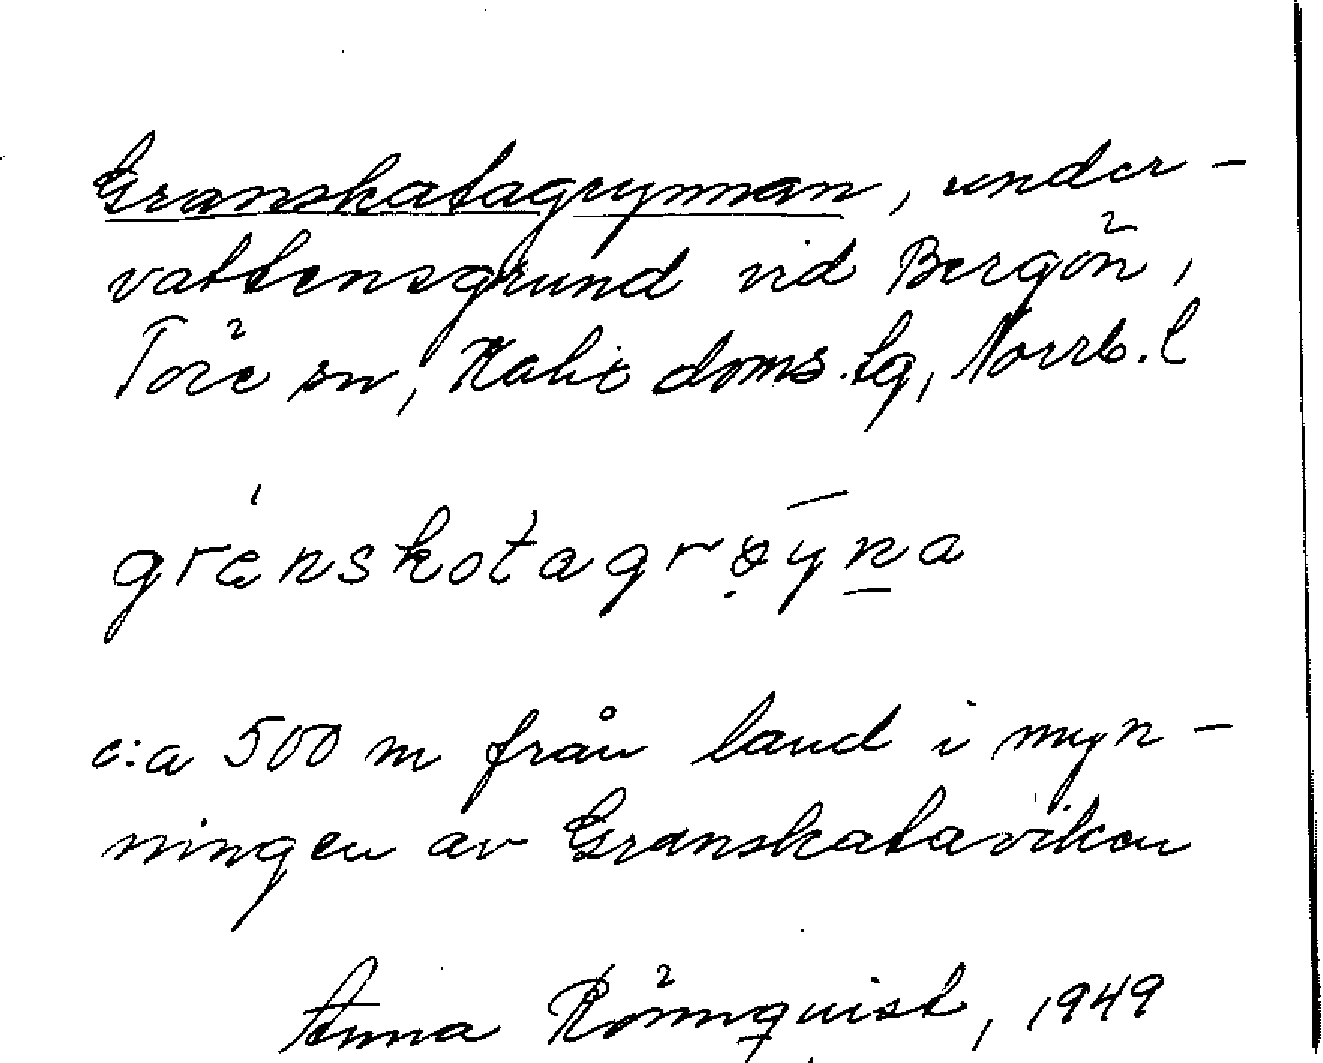 Granskatagrynnan, under-
vattensgrund vid Bergön,
Töre sn, Kalix doms.lg, Norrb. l
grànskotagrøẏn̲a
c:a 500 m från land i myn-
ningen av Granskataviken
Anna Rönnquist, 1949